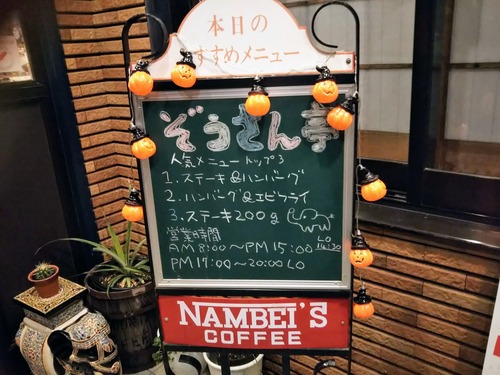 本日の
すすめメニュー
ぞうさん亭
人気メニュートップ3
1.ステーキ&ハンバーグ
2.ハンバーグ&エビフライ
3.ステーキ200g
営業時間
AM 8:00〜PM 15:00 LO 14:30
PM 17:00〜20:00 LO
NAMBEI'S
COFFEE